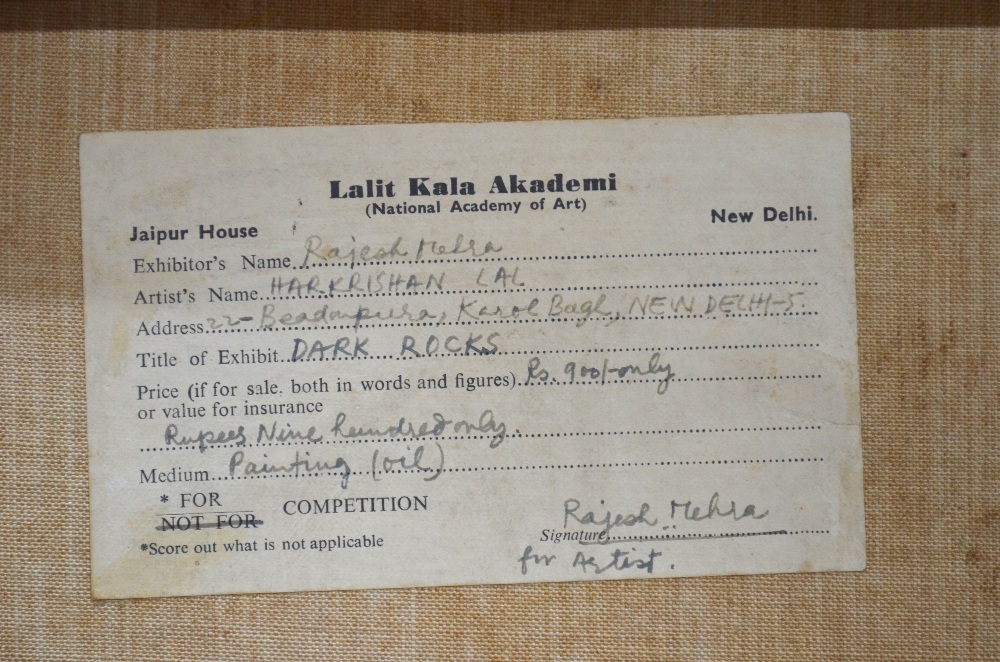 Lalit Kala Akademi
(National Academy of Art)
Jaipur House New Delhi.
Exhibitor's Name Rajesh Mehra
Artist's Name HARKRISHAN LAL
Address 22- Beadonpura, Karol Bagh, NEW DELHI-5.
Title of Exhibit DARK ROCKS
Price (if for sale, both in words and figures) Rs. 900/-only
or value for insurance
Rupees Nine hundred only.
Medium Painting (oil)
* FOR
NOT FOR COMPETITION
*Score out what is not applicable
Rajesh Mehra
Signature
for Artist.